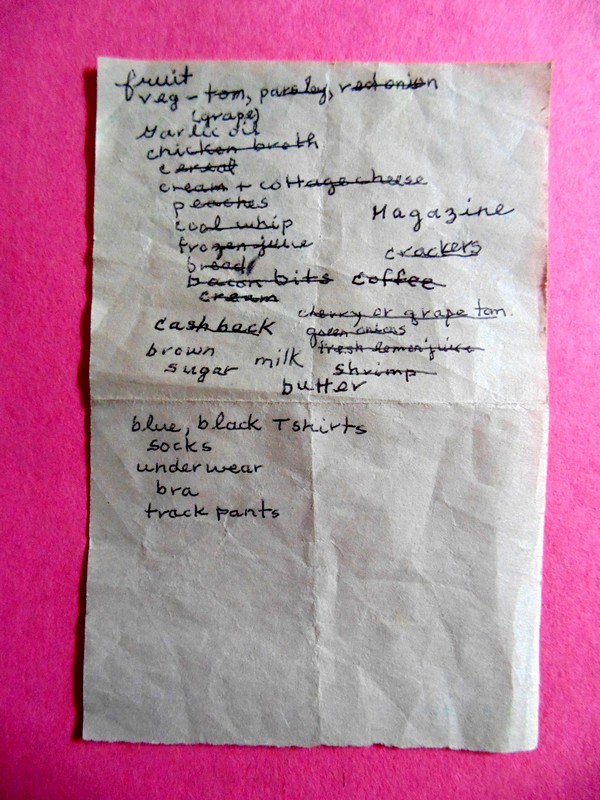 fruit
veg - tom, parsley, red onion
(grape)
garlic oil
chicken broth
cereal
cream + cottage cheese
peaches
cool whip
Magazine
frozen juice
crackers
bread
bacon bits coffee
cream
cherry or grape tom.
cash back
green onions
brown
sugar
milk
fresh lemon juice
shrimp
butter
blue, black Tshirts
socks
underwear
bra
track pants